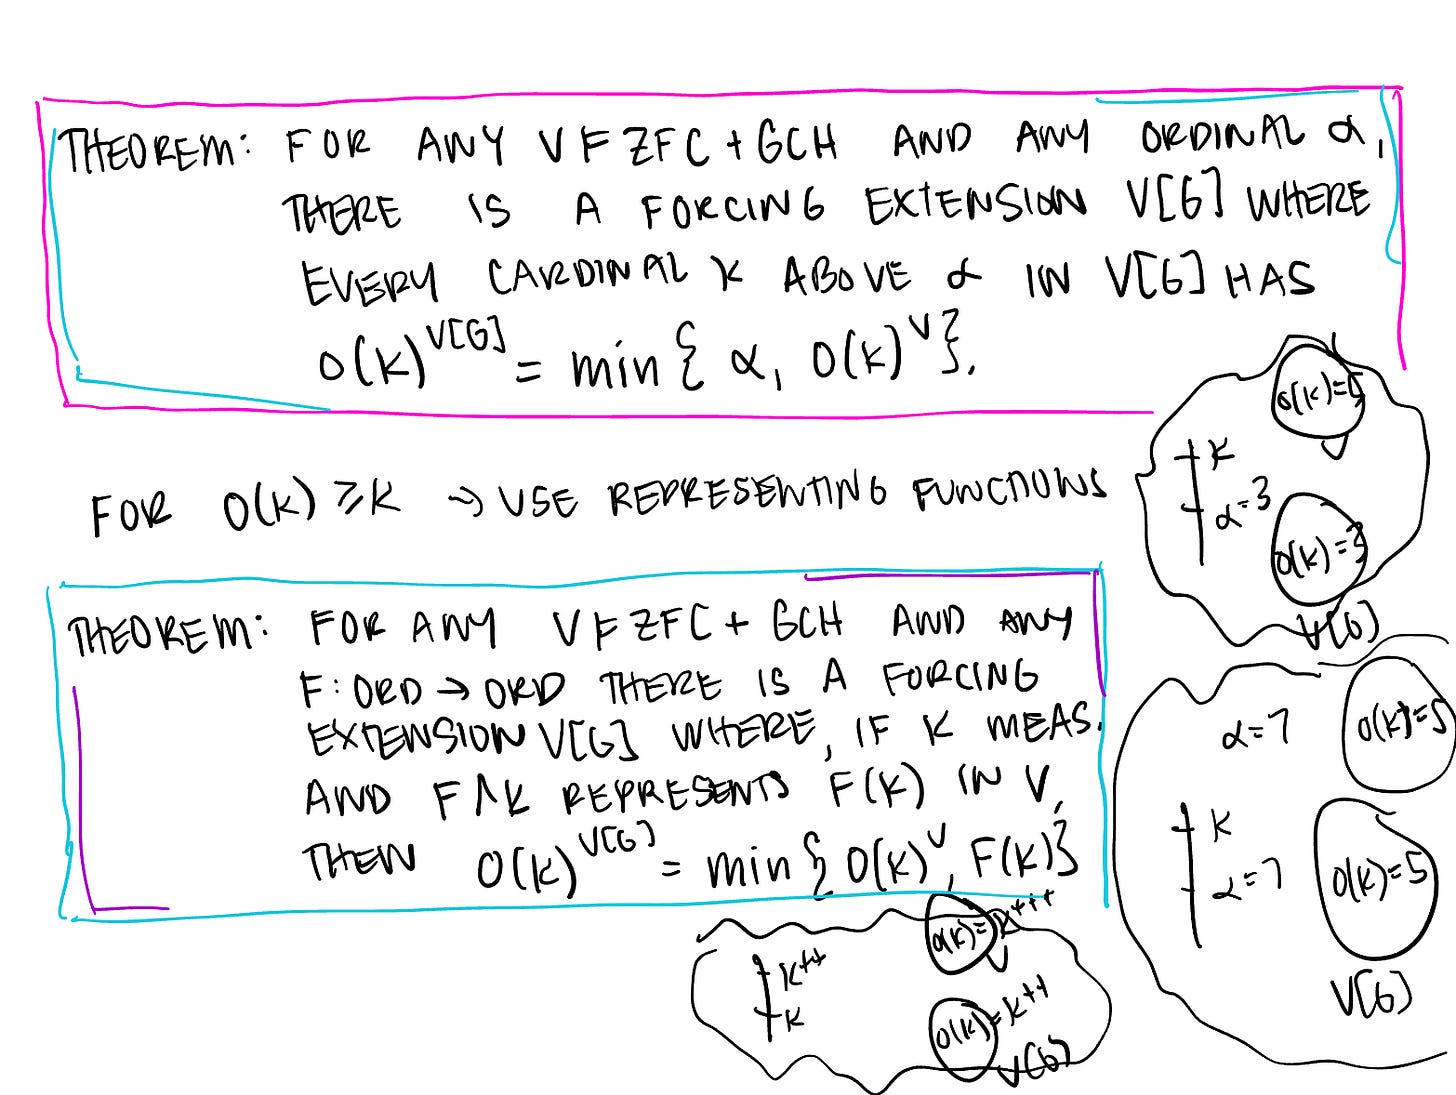 THEOREM: FOR ANY V ⊨ ZFC + GCH AND ANY ORDINAL α,
THERE IS A FORCING EXTENSION V[G] WHERE
EVERY CARDINAL K ABOVE α IN V[G] HAS
O(K)^V[G] = min { α, O(K)^V }.
FOR O(K) ≥ K → USE REPRESENTING FUNCTIONS
O(K)=5
K
α=3
O(K)=3
V[G]
THEOREM: FOR ANY V ⊨ ZFC + GCH AND ANY
F: ORD → ORD THERE IS A FORCING
EXTENSION V[G] WHERE, IF K MEAS.
AND F↾K REPRESENTS F(K) IN V,
THEN O(K)^V[G] = min { O(K)^V, F(K)}
α=7
O(K)=5
K
α=7
O(K)=5
V[G]
O(K)=K+++
K++
K
O(K)=K++
V[G]